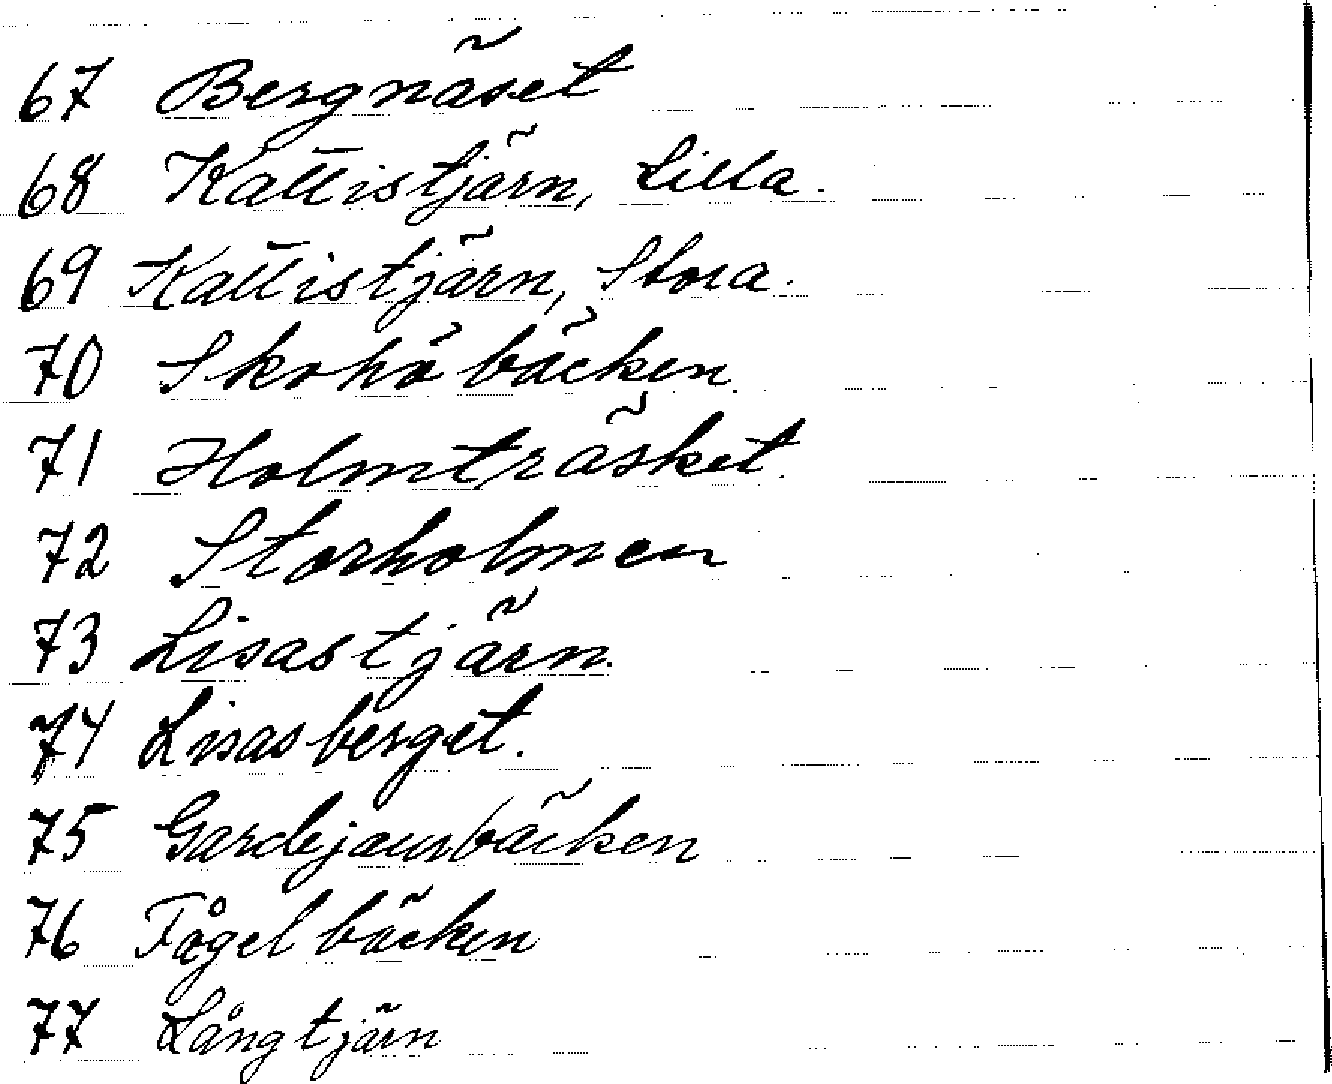 67 Bergnäset
68 Kattistjärn, Lilla.
69 Kattistjärn, Stora.
70 Skohöbäcken.
71 Holmträsket.
72 Storholmen
73 Lisastjärn.
74 Lisasberget.
75 Gardejaurbäcken
76 Fågelbäcken
77 Långtjärn